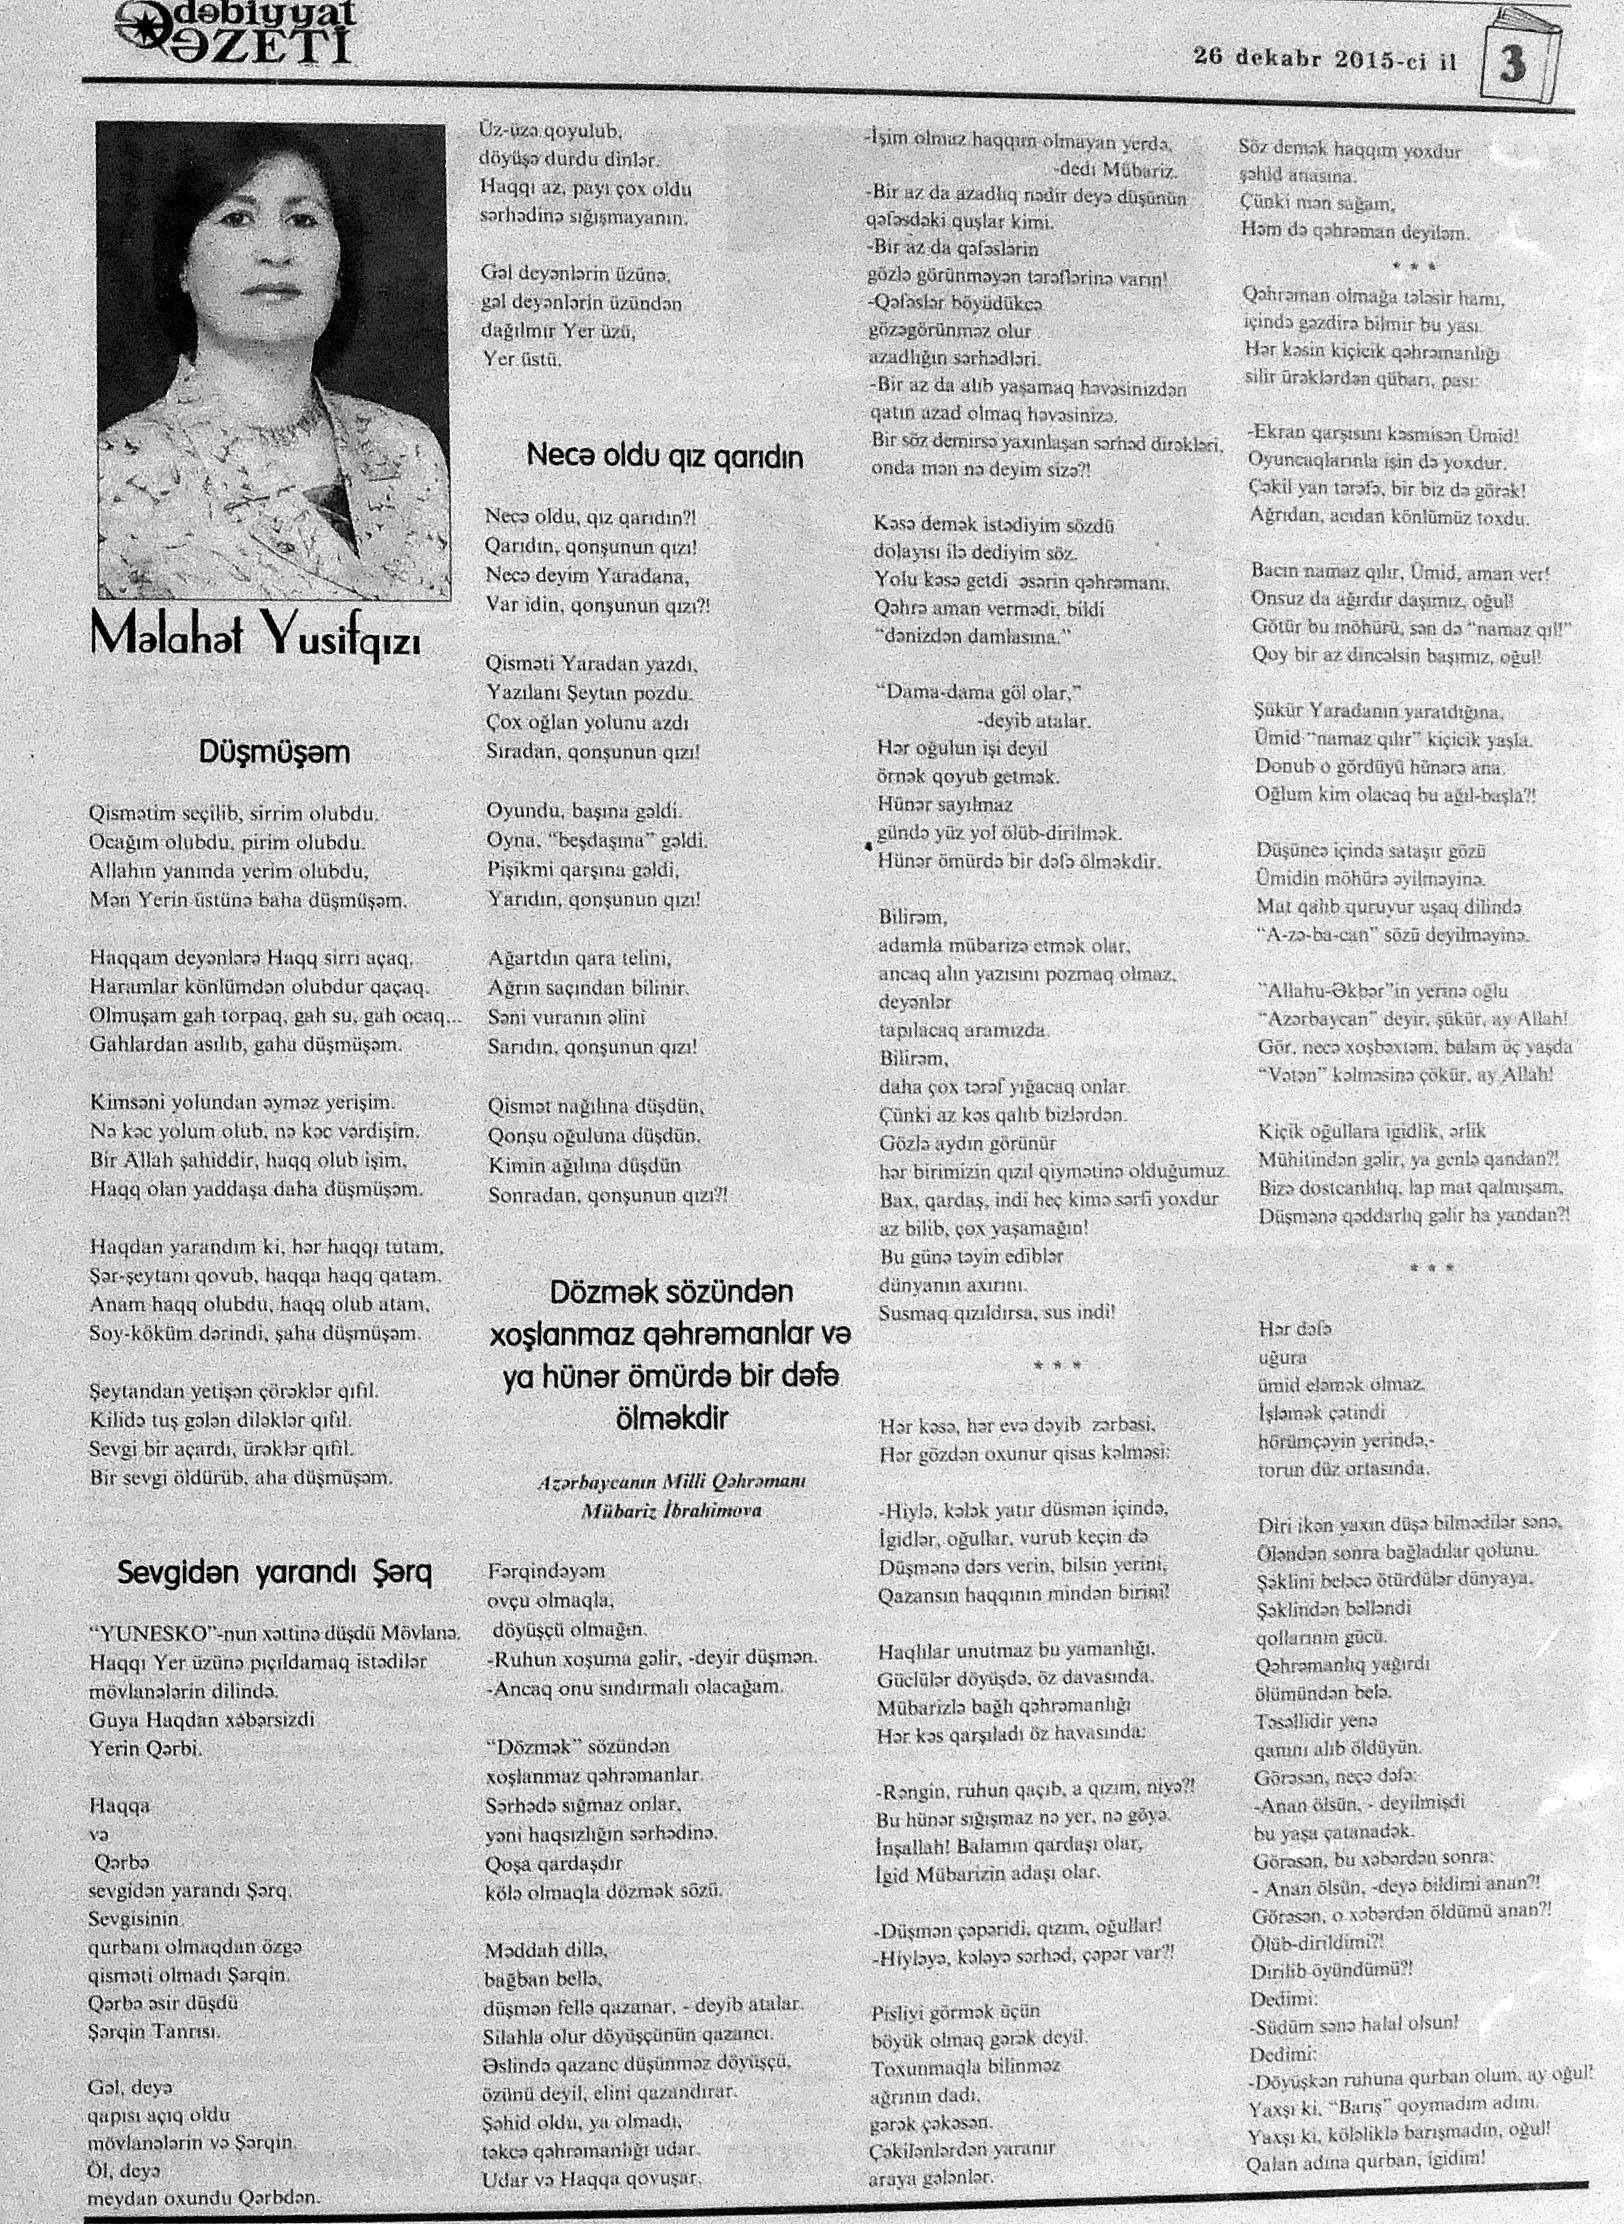 Ədəbiyyat
QƏZETİ
26 dekabr 2015-ci il
3
Məlahət Yusifqızı
Düşmüşəm
Qismətim seçilib, sirrim olubdu.
Ocağım olubdu, pirim olubdu.
Allahın yanında yerim olubdu,
Mən Yerin üstünə baha düşmüşəm.
Haqqam deyənlərə Haqq sirri açaq.
Haramlar könlümdən olubdur qaçaq.
Olmuşam gah torpaq, gah su, gah ocaq...
Gahlardan asılıb, gaha düşmüşəm.
Kimsəni yolundan əyməz yerişim.
Nə kəc yolum olub, nə kəc vərdişim.
Bir Allah şahiddir, haqq olub işim,
Haqq olan yaddaşa daha düşmüşəm.
Haqdan yarandım ki, hər haqqı tutam,
Şər-şeytanı qovub, haqqa haqq qatam.
Anam haqq olubdu, haqq olub atam,
Soy-köküm dərindi, şaha düşmüşəm.
Şeytandan yetişən çörəklər qıfıl.
Kilidə tuş gələn diləklər qıfıl.
Sevgi bir açardı, ürəklər qıfıl.
Bir sevgi öldürüb, aha düşmüşəm.
Sevgidən yarandı Şərq
“YUNESKO”-nun xəttinə düşdü Mövlanə.
Haqqı Yer üzünə pıçıldamaq istədilər
mövlanələrin dilində.
Guya Haqdan xəbərsizdi
Yerin Qərbi.
Haqqa
və
Qərbə
sevgidən yarandı Şərq.
Sevgisinin
qurbanı olmaqdan özgə
qisməti olmadı Şərqin.
Qərbə əsir düşdü
Şərqin Tanrısı.
Gəl, deyə
qapısı açıq oldu
mövlanələrin və Şərqin.
Öl, deyə
meydan oxundu Qərbdən.
Üz-üzə qoyulub,
döyüşə durdu dinlər.
Haqqı az, payı çox oldu
sərhədinə sığışmayanın.
Gəl deyənlərin üzünə,
gəl deyənlərin üzündən
dağılmır Yer üzü,
Yer üstü.
Necə oldu qız qarıdın
Necə oldu, qız qarıdın?!
Qarıdın, qonşunun qızı!
Necə deyim Yaradana,
Var idin, qonşunun qızı?!
Qisməti Yaradan yazdı,
Yazılanı Şeytan pozdu.
Çox oğlan yolunu azdı
Sıradan, qonşunun qızı!
Oyundu, başına gəldi.
Oyna, “beşdaşına” gəldi.
Pişikmi qarşına gəldi,
Yarıdın, qonşunun qızı!
Ağartdın qara telini,
Ağrın saçından bilinir.
Səni vuranın əlini
Sarıdın, qonşunun qızı!
Qismət nağılına düşdün,
Qonşu oğuluna düşdün,
Kimin ağılına düşdün
Sonradan, qonşunun qızı?!
Dözmək sözündən
xoşlanmaz qəhrəmanlar və
ya hünər ömürdə bir dəfə
ölməkdir
Azərbaycanın Milli Qəhrəmanı
Mübariz İbrahimova
Fərqindəyəm
ovçu olmaqla,
döyüşçü olmağın.
-Ruhun xoşuma gəlir, -deyir düşmən.
-Ancaq onu sındırmalı olacağam.
“Dözmək” sözündən
xoşlanmaz qəhrəmanlar.
Sərhədə sığmaz onlar,
yəni haqsızlığın sərhədinə.
Qoşa qardaşdır
kölə olmaqla dözmək sözü.
Məddah dillə,
bağban bellə,
düşmən fellə qazanar, - deyib atalar.
Silahla olur döyüşçünün qazancı.
Əslində qazanc düşünməz döyüşçü,
özünü deyil, elini qazandırar.
Şəhid oldu, ya olmadı,
təkcə qəhrəmanlığı udar.
Udar və Haqqa qovuşar.
-İşim olmaz haqqım olmayan yerdə,
-dedi Mübariz.
-Bir az da azadlıq nədir deyə düşünün
qəfəsdəki quşlar kimi.
-Bir az da qəfəslərin
gözlə görünməyən tərəflərinə varın!
-Qəfəslər böyüdükcə
gözəgörünməz olur
azadlığın sərhədləri.
-Bir az da alıb yaşamaq həvəsinizdən
qatın azad olmaq həvəsinizə.
Bir söz demirsə yaxınlaşan sərhəd dirəkləri,
onda mən nə deyim sizə?!
Kəsə demək istədiyim sözdü
dolayısı ilə dediyim söz.
Yolu kəsə getdi əsərin qəhrəmanı.
Qəhrə aman vermədi, bildi
“dənizdən damlasına.”
“Dama-dama göl olar,”
-deyib atalar.
Hər oğulun işi deyil
örnək qoyub getmək.
Hünər sayılmaz
gündə yüz yol ölüb-dirilmək.
Hünər ömürdə bir dəfə ölməkdir.
Bilirəm,
adamla mübarizə etmək olar,
ancaq alın yazısını pozmaq olmaz,
deyənlər
tapılacaq aramızda.
Bilirəm,
daha çox tərəf yığacaq onlar.
Çünki az kəs qalıb bizlərdən.
Gözlə aydın görünür
hər birimizin qızıl qiymətinə olduğumuz.
Bax, qardaş, indi heç kimə sərfi yoxdur
az bilib, çox yaşamağın!
Bu günə təyin ediblər
dünyanın axırını.
Susmaq qızıldırsa, sus indi!
* * *
Hər kəsə, hər evə dəyib zərbəsi,
Hər gözdən oxunur qisas kəlməsi:
-Hiylə, kələk yatır düsmən içində,
İgidlər, oğullar, vurub keçin də
Düşmənə dərs verin, bilsin yerini,
Qazansın haqqının mindən birini!
Haqlılar unutmaz bu yamanlığı,
Güclülər döyüşdə, öz davasında.
Mübarizlə bağlı qəhrəmanlığı
Hər kəs qarşıladı öz havasında:
-Rəngin, ruhun qaçıb, a qızım, niyə?!
Bu hünər sığışmaz nə yer, nə göyə.
İnşallah! Balamın qardaşı olar,
İgid Mübarizin adaşı olar.
-Düşmən çəpəridi, qızım, oğullar!
-Hiyləyə, kələyə sərhəd, çəpər var?!
Pisliyi görmək üçün
böyük olmaq gərək deyil.
Toxunmaqla bilinməz
ağrının dadı,
gərək çəkəsən.
Çəkilənlərdən yaranır
araya gələnlər.
Söz demək haqqım yoxdur
şəhid anasına.
Çünki mən sağam,
Həm də qəhrəman deyiləm.
* * *
Qəhrəman olmağa tələsir hamı,
içində gəzdirə bilmir bu yası.
Hər kəsin kiçicik qəhrəmanlığı
silir ürəklərdən qübarı, pası:
-Ekran qarşısını kəsmisən Ümid!
Oyuncaqlarınla işin də yoxdur.
Çəkil yan tərəfə, bir biz də görək!
Ağrıdan, acıdan könlümüz toxdu.
Bacın namaz qılır, Ümid, aman ver!
Onsuz da ağırdır daşımız, oğul!
Götür bu möhürü, sən də “namaz qıl!”
Qoy bir az dincəlsin başımız, oğul!
Şükür Yaradanın yaratdığına,
Ümid “namaz qılır” kiçicik yaşla.
Donub o gördüyü hünərə ana.
Oğlum kim olacaq bu ağıl-başla?!
Düşüncə içində sataşır gözü
Ümidin möhürə əyilməyinə.
Mat qalıb quruyur uşaq dilində
“A-zə-ba-can” sözü deyilməyinə.
“Allahu-Əkbər”in yerinə oğlu
“Azərbaycan” deyir, şükür, ay Allah!
Gör, necə xoşbəxtəm, balam üç yaşda
“Vətən” kəlməsinə çökür, ay Allah!
Kiçik oğullara igidlik, ərlik
Mühitindən gəlir, ya genlə qandan?!
Bizə dostcanlılıq, lap mat qalmışam,
Düşmənə qəddarlıq gəlir ha yandan?!
* * *
Hər dəfə
uğura
ümid eləmək olmaz.
İşləmək çətindi
hörümçəyin yerində,-
torun düz ortasında.
Diri ikən yaxın düşə bilmədilər sənə,
Öləndən sonra bağladılar qolunu.
Şəklini beləcə ötürdülər dünyaya,
Şəklindən bəlləndi
qollarının gücü.
Qəhrəmanlıq yağırdı
ölümündən belə.
Təsəllidir yenə
qanını alıb öldüyün.
Görəsən, neçə dəfə:
-Anan ölsün, - deyilmişdi
bu yaşa çatanadək.
Görəsən, bu xəbərdən sonra:
- Anan ölsün, -deyə bildimi anan?!
Görəsən, o xəbərdən öldümü anan?!
Ölüb-dirildimi?!
Dirilib öyündümü?!
Dedimi:
-Südüm sənə halal olsun!
Dedimi:
-Döyüşkən ruhuna qurban olum, ay oğul!
Yaxşı ki, “Barış” qoymadım adını.
Yaxşı ki, köləliklə barışmadın, oğul!
Qalan adına qurban, igidim!